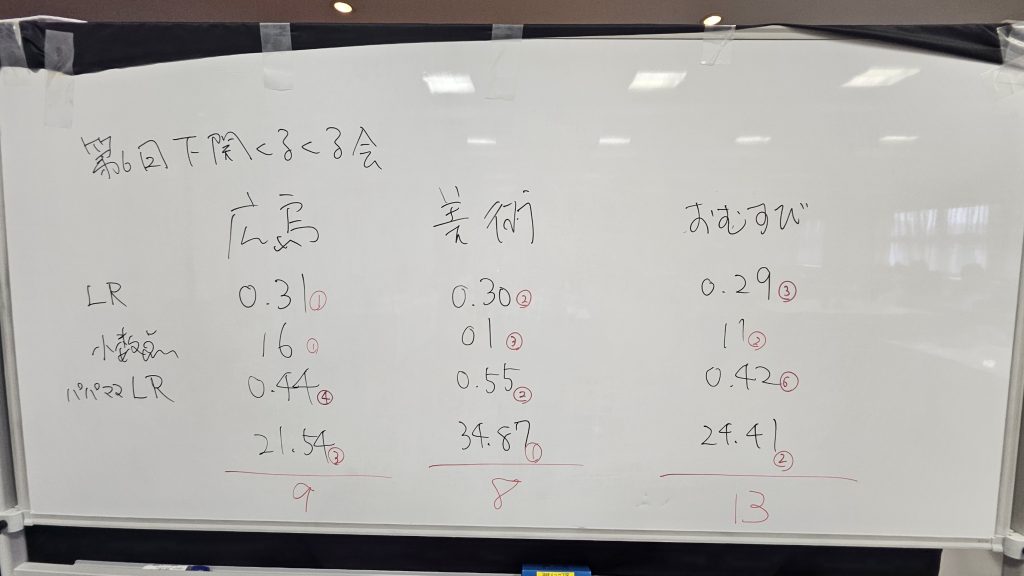 第6回下関くるくる会
広島 美術 おむすび
LR 0.31① 0.30② 0.29③
小数点 16① 01③ 11②
パパママLR 0.44④ 0.55② 0.42⑥
21.54③ 34.87① 24.41②
9 8 13